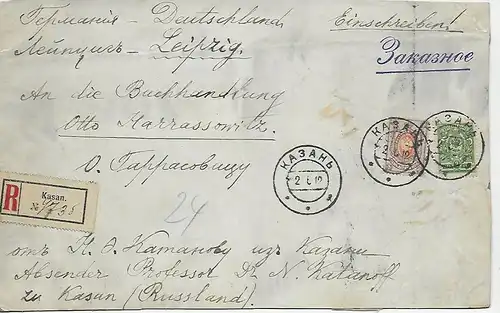 Германія – Deutschland Einschreiben!
Лейпцигъ – Leipzig. Заказное
An die Buchhandlung
Otto Harrassowitz.
О. Гаррасовицу
КАЗАНЬ
КАЗАНЬ
КАЗАНЬ
R Kasan.
№
24
отъ Н. Ѳ. Катанова изъ Казани
Absender Professor Dr N. Katanoff
zu Kasan (Russland)